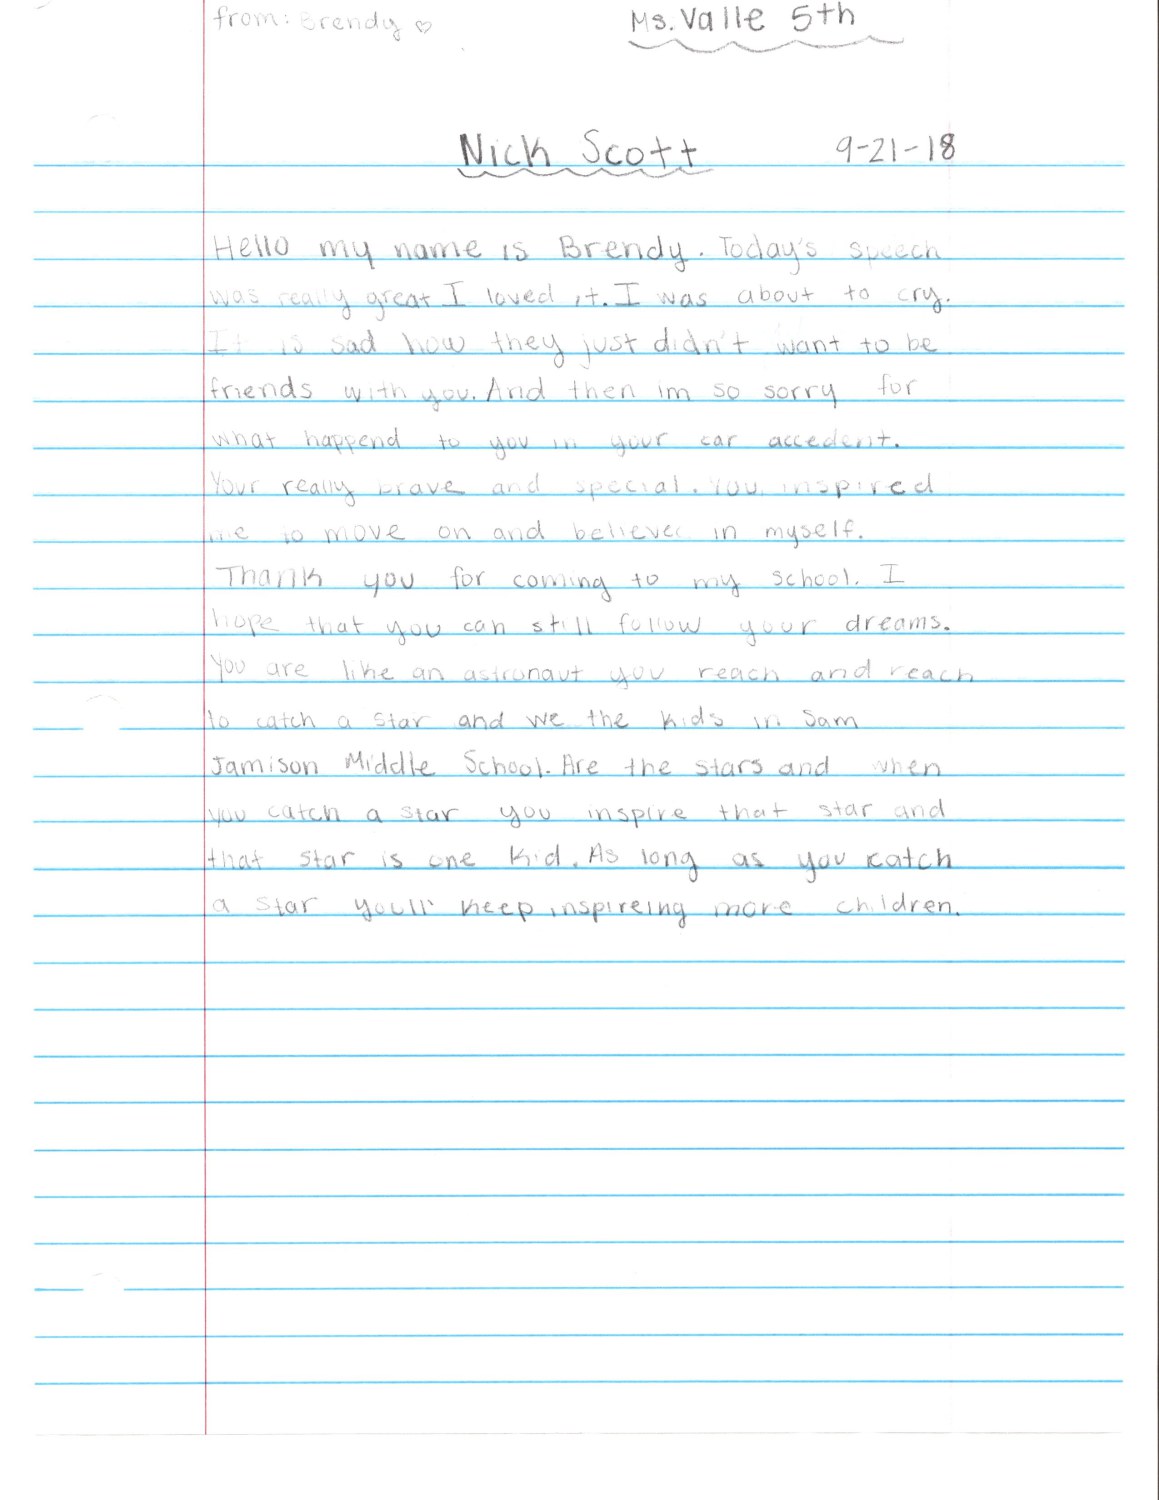 from: Brendy ♡
Ms. Valle 5th
Nick Scott 9-21-18
Hello my name is Brendy. Today's speech
was really great I loved it. I was about to cry.
It is sad how they just didn't want to be
friends with you. And then im so sorry for
what happend to you in your car accedent.
Your really brave and special. You inspired
me to move on and believe in myself.
Thank you for coming to my school. I
hope that you can still follow your dreams.
You are like an astronaut you reach and reach
to catch a star and we the kids in Sam
Jamison Middle School. Are the stars and when
you catch a star you inspire that star and
that star is one kid. As long as you catch
a star youll' keep inspireing more children.